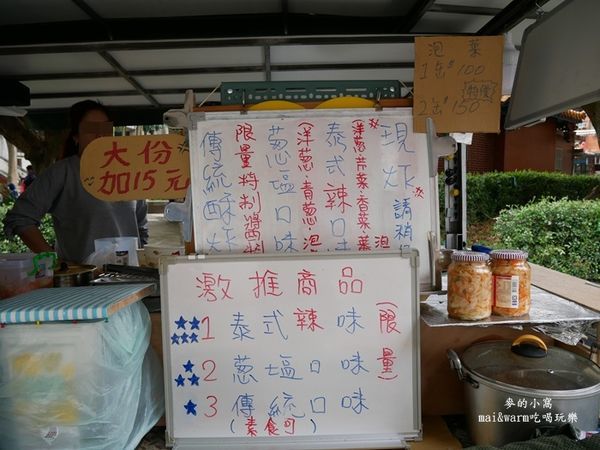 泡菜
1缶$100
2缶$150
大份
加15元
現炸請稍
(洋蔥芹菜香菜泡
泰式辣口味
(洋蔥青蔥泡
蔥塩口味
限量特制醬
傳統酥炸
激推商品
1 泰式辣味(限量)
2 蔥塩口味
3 傳統口味
(素食可)
麥的小窩
mai&warm吃喝玩樂